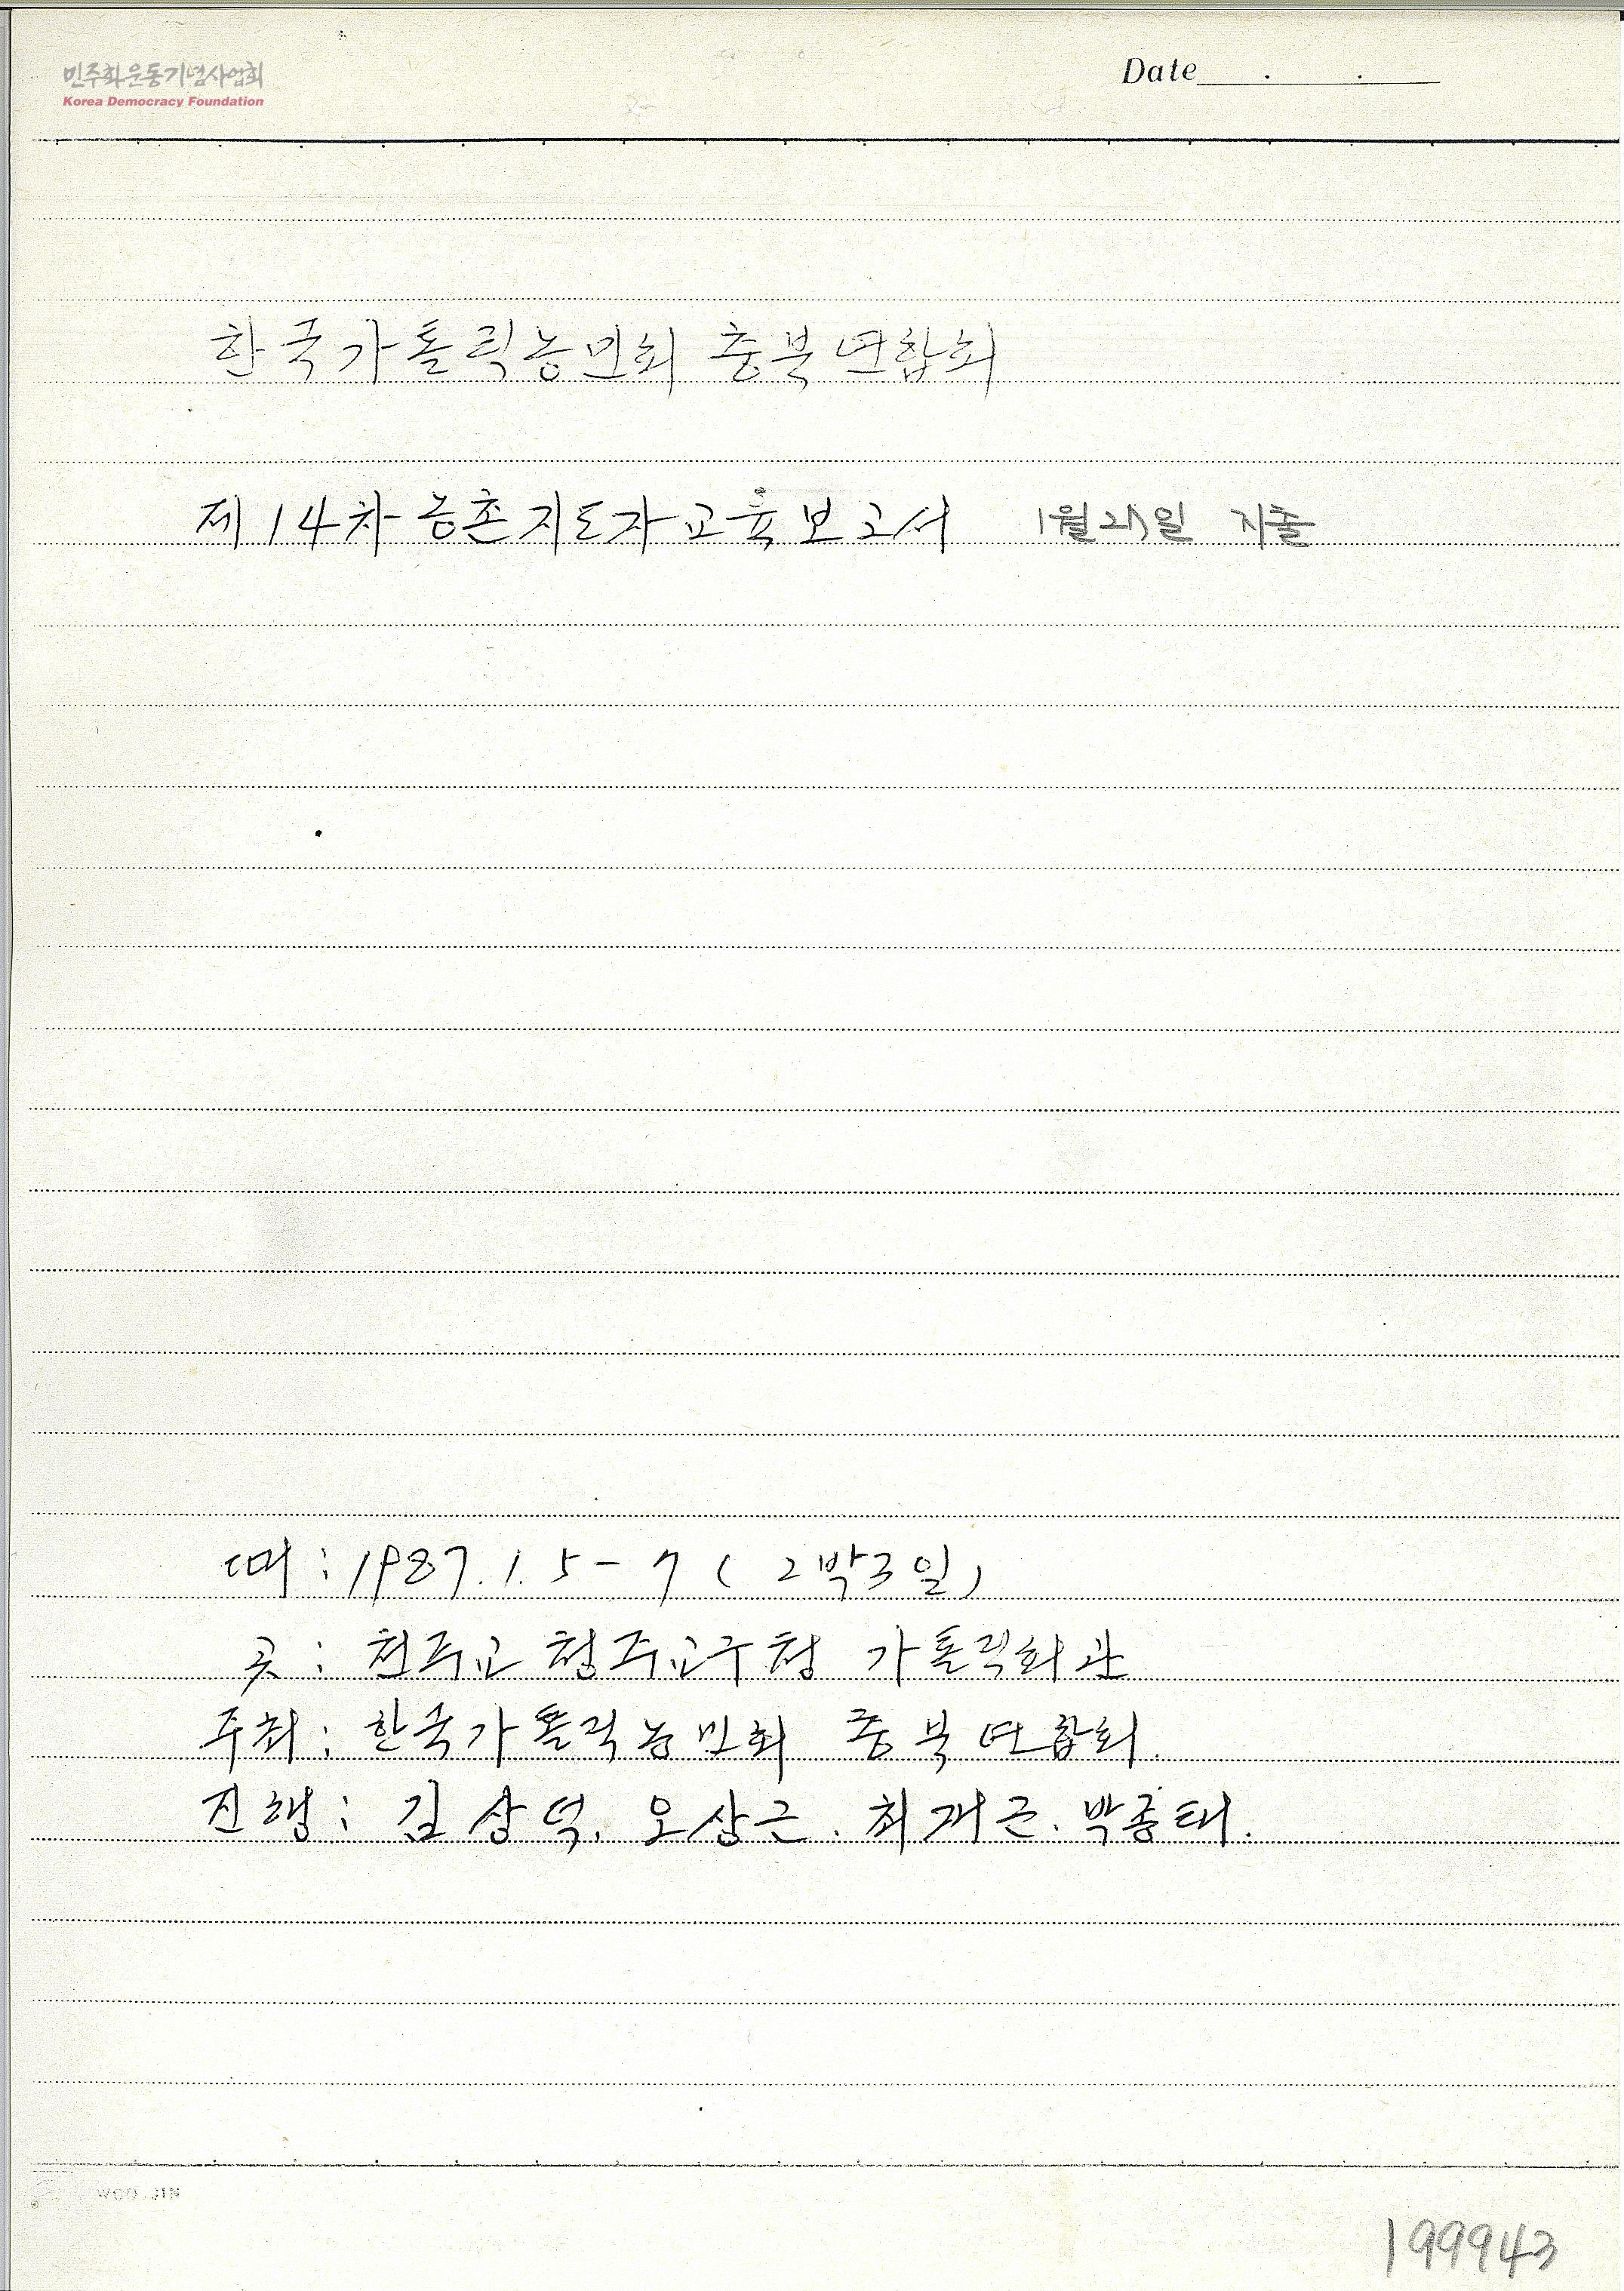 민주화운동기념사업회
Korea Democracy Foundation
Date . .
한국가톨릭농민회 충북연합회
제14차 농촌지도자교육보고서 1월21일 지출
때 : 1987. 1. 5 - 7 ( 2박3일 )
곳 : 천주교 청주교구청 가톨릭회관
주최 : 한국가톨릭농민회 충북연합회.
진행 : 김상덕. 오상근. 최재근. 박종태.
WOO JIN
199943